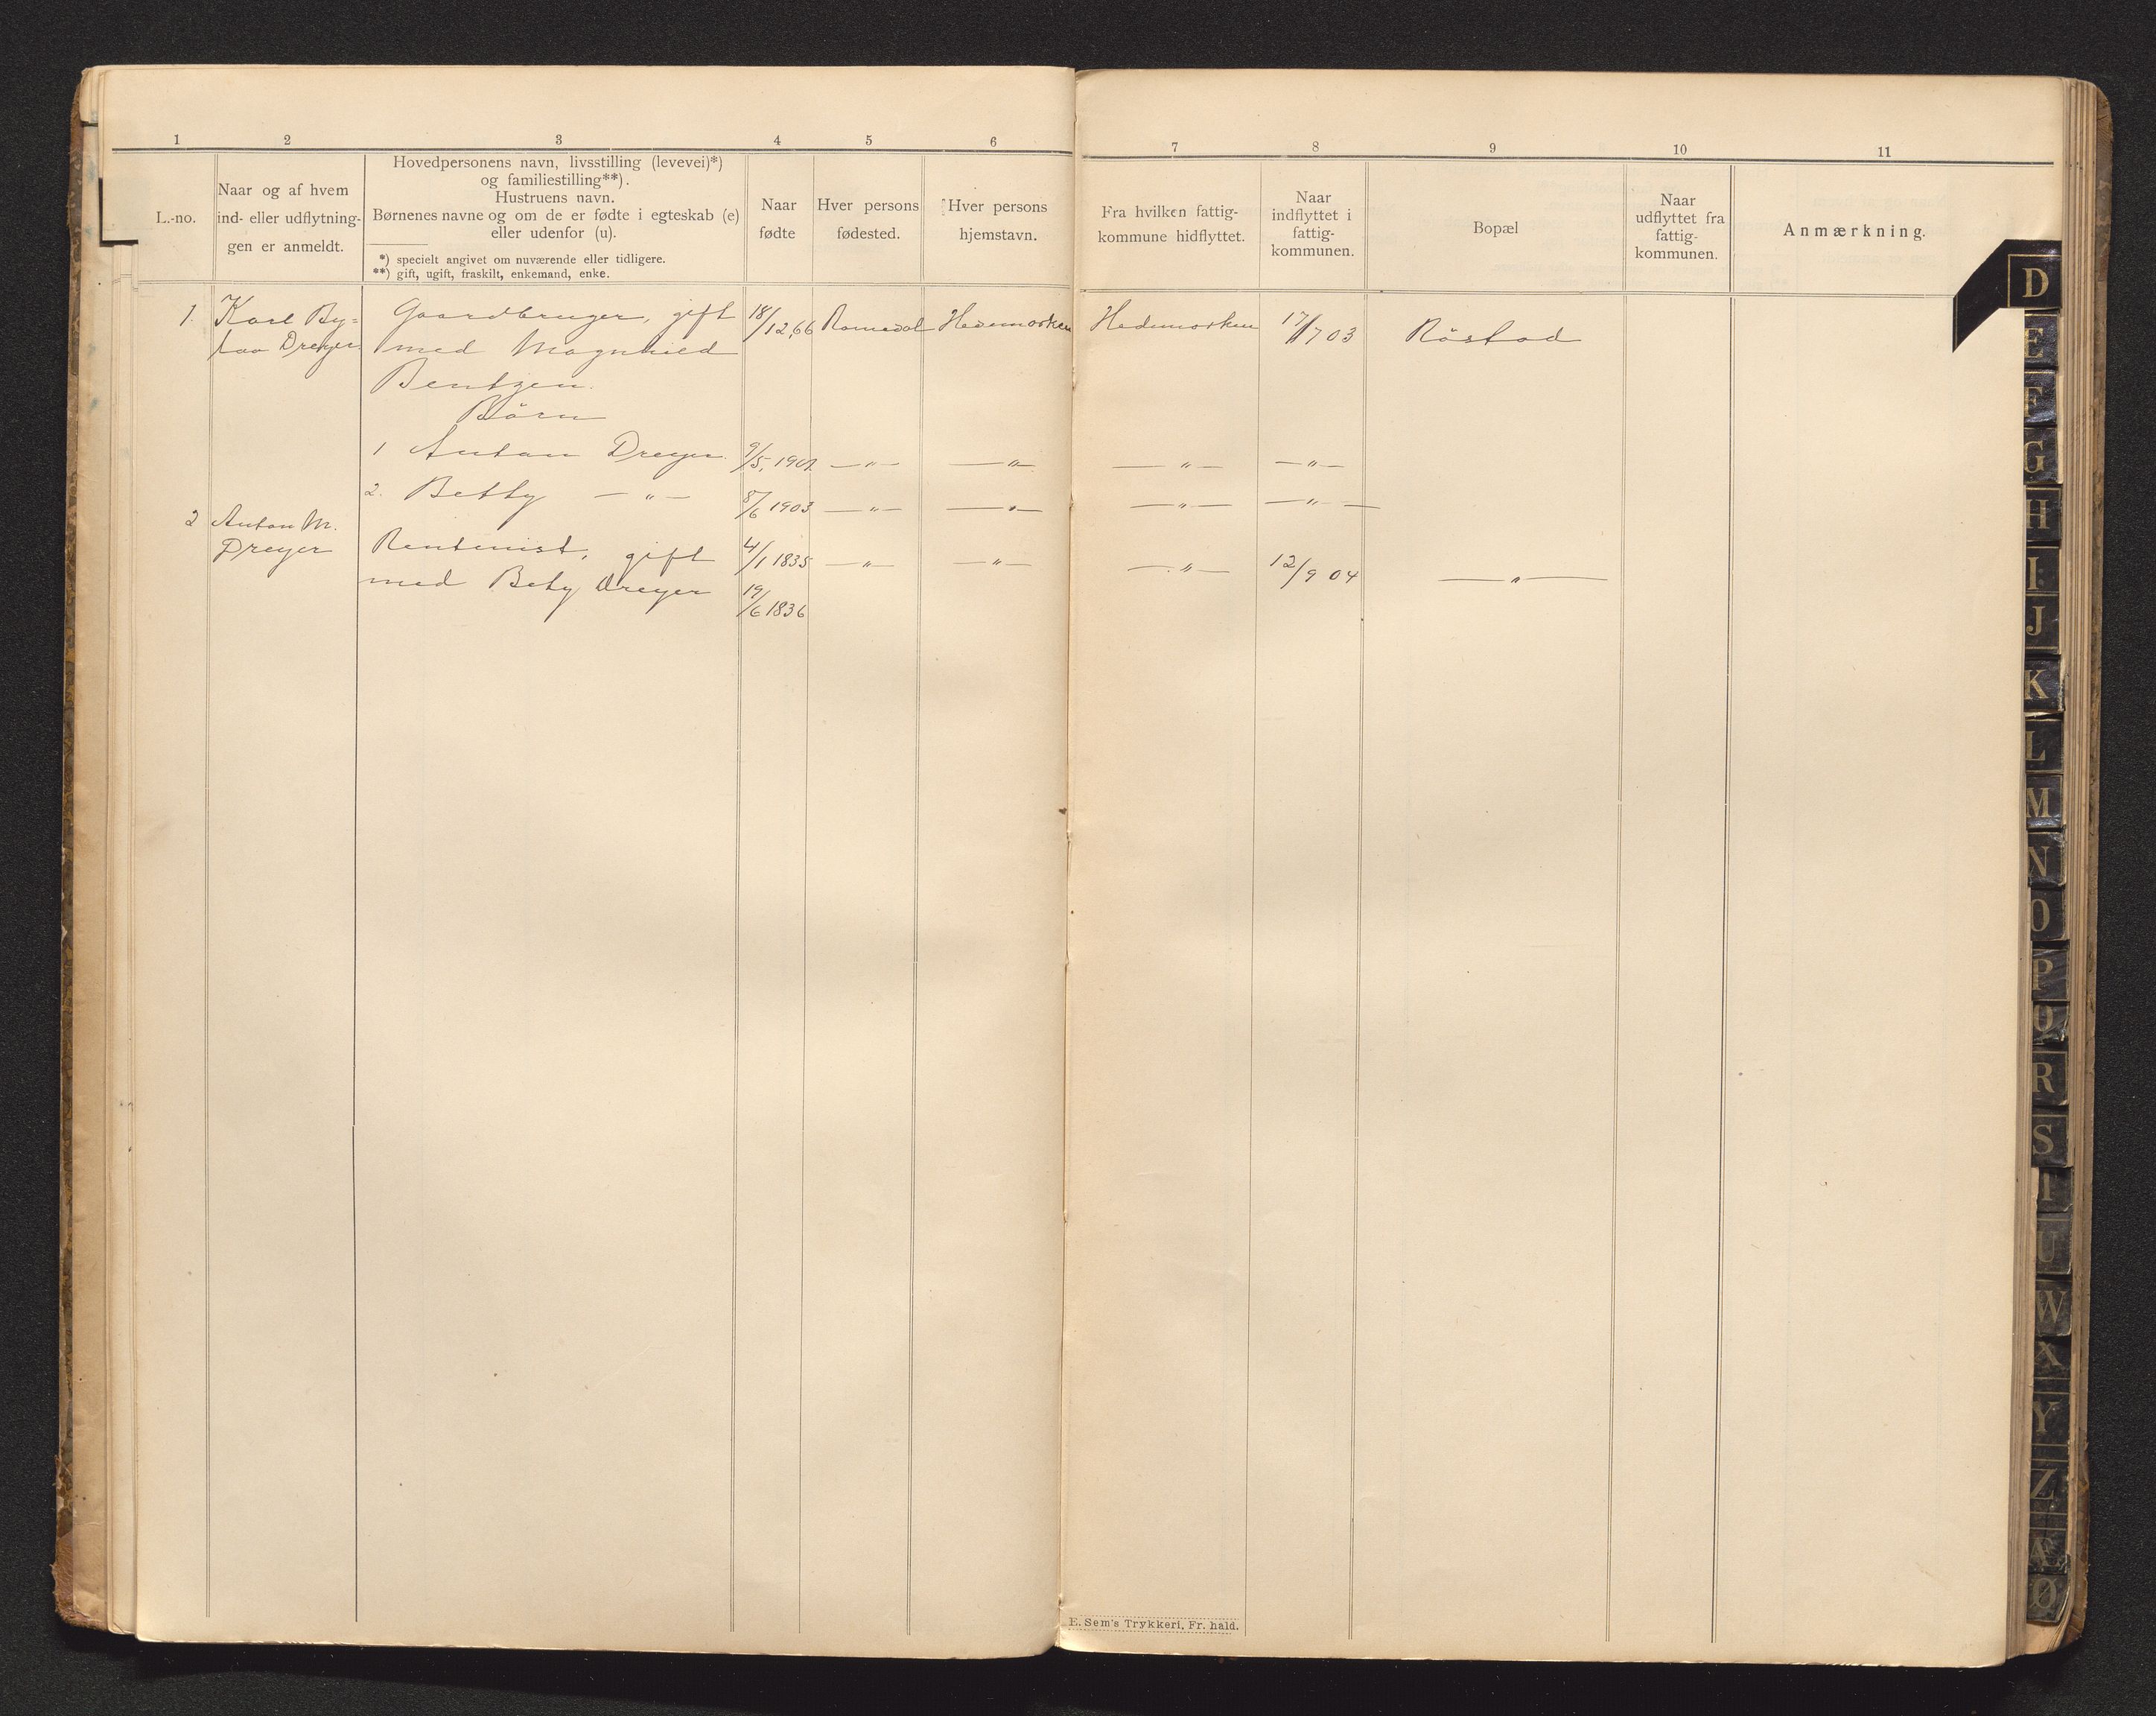 1 2 3 4 5 6 7 8 9 10 11
L.-no.
Naar og af hvem
ind- eller udflytnin-
gen er anmeldt.
Hovedpersonens navn, livsstilling (levevei)*)
og familiestilling**).
Hustruens navn.
Børnenes navne og om de er fødte i egteskab (e)
eller udenfor (u).
*) specielt angivet om nuværende eller tidligere.
**) gift, ugift, fraskilt, enkemand, enke.
Naar
fødte
Hver persons
fødested.
Hver persons
hjemstavn.
Fra hvilken fattig-
kommune hidflyttet.
Naar
indflyttet i
fattig-
kommunen.
Bopæl
Naar
udflyttet fra
fattig-
kommunen.
Anmærkning.
1. Karl By= Gaardbruger, gift 18/12,66 Romedal Hedemarken Hedemarken 17/7 03 Röstad
Dreyer med Magnhild
Bentzen.
Börn
1 Anton Dreyer. 9/5, 1901 —"— —"— —"— —"—
2. Betty —"— 8/6 1903 —"— —"— —"— —"—
2 Anton M.
Dreyer Rentenist, gift 4/1 1835 —"— —"— —"— 12/9 04 —"—
med Bety Dreyer 19/6 1836
E. Sem's Trykkeri, Fr. hald.
D
E
F
G
H
I
J
K
L
M
N
O
P
Q
R
S
T
U
W
X
Y
Z
Æ
Ø